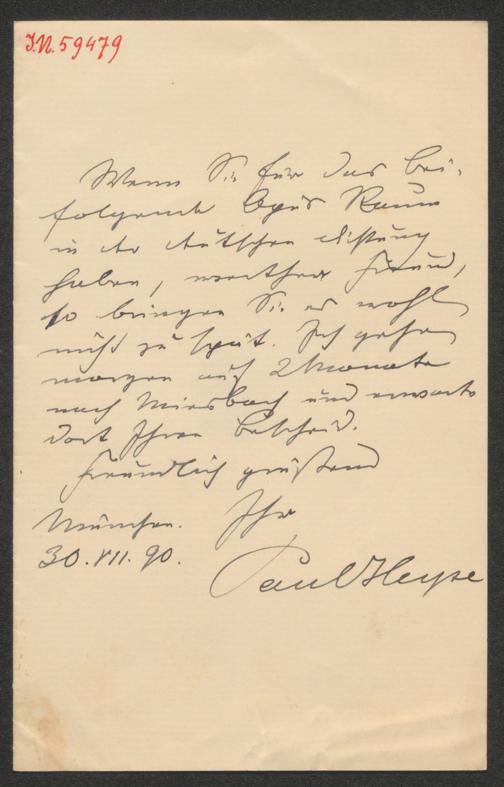 J.N. 59479
Wenn Sie für das bei-
folgende Opus Raum
in der deutschen Dichtung
haben, werther Freund,
so bringen Sie es wohl
nicht zu spät. Ich gehe
morgen auf 2 Monate
nach Miesbach und erwarte
dort Ihren Bescheid.
Freundlich grüßend
München. Ihr
30. VII. 90.
Paul Heyse